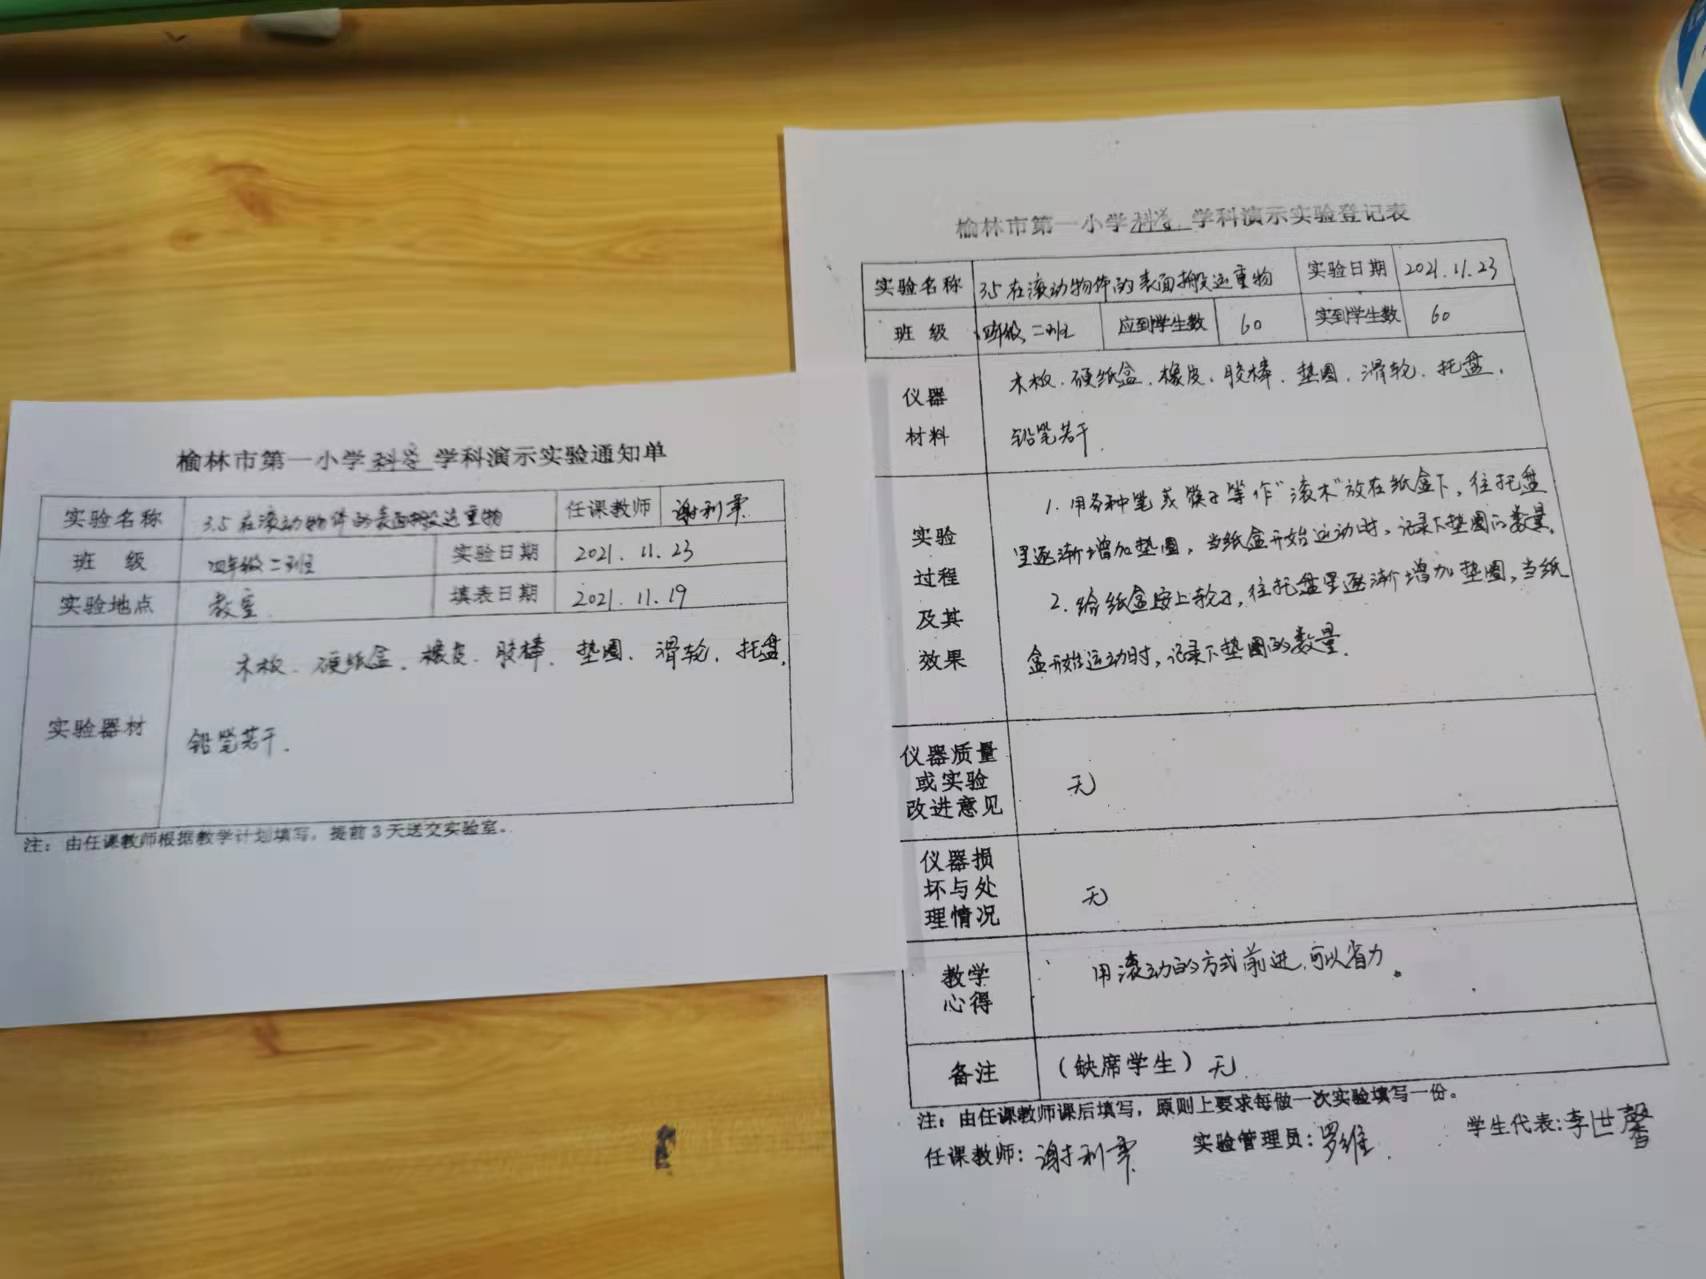 榆林市第一小学科学学科演示实验通知单
实验名称 3.5在滚动物体的表面搬运重物 任课教师 谢利
班 级 四年级二班 实验日期 2021.11.23
实验地点 教室 填表日期 2021.11.19
实验器材 木板、硬纸盒、橡皮、胶棒、垫圈、滑轮、托盘、
铅笔若干.
注：由任课教师根据教学计划填写，提前3天送交实验室。
榆林市第一小学科学学科演示实验登记表
实验名称 3.5在滚动物体的表面搬运重物 实验日期 2021.11.23
班 级 四年级二班 应到学生数 60 实到学生数 60
仪器 木板、硬纸盒、橡皮、胶棒、垫圈、滑轮、托盘、
材料 铅笔若干.
1.用各种笔或筷子等作“滚木”放在纸盒下，往托盘
实验
里逐渐增加垫圈，当纸盒开始运动时，记录下垫圈的数量。
过程
2.给纸盒安上轮子，往托盘里逐渐增加垫圈，当纸
及其
盒开始运动时，记录下垫圈的数量.
效果
仪器质量
或实验 无
改进意见
仪器损
坏与处 无
理情况
教学 用滚动的方式前进，可以省力。
心得
备注 （缺席学生）无
注：由任课教师课后填写，原则上要求每做一次实验填写一份。
任课教师：谢利 实验管理员：罗维 学生代表：李世馨